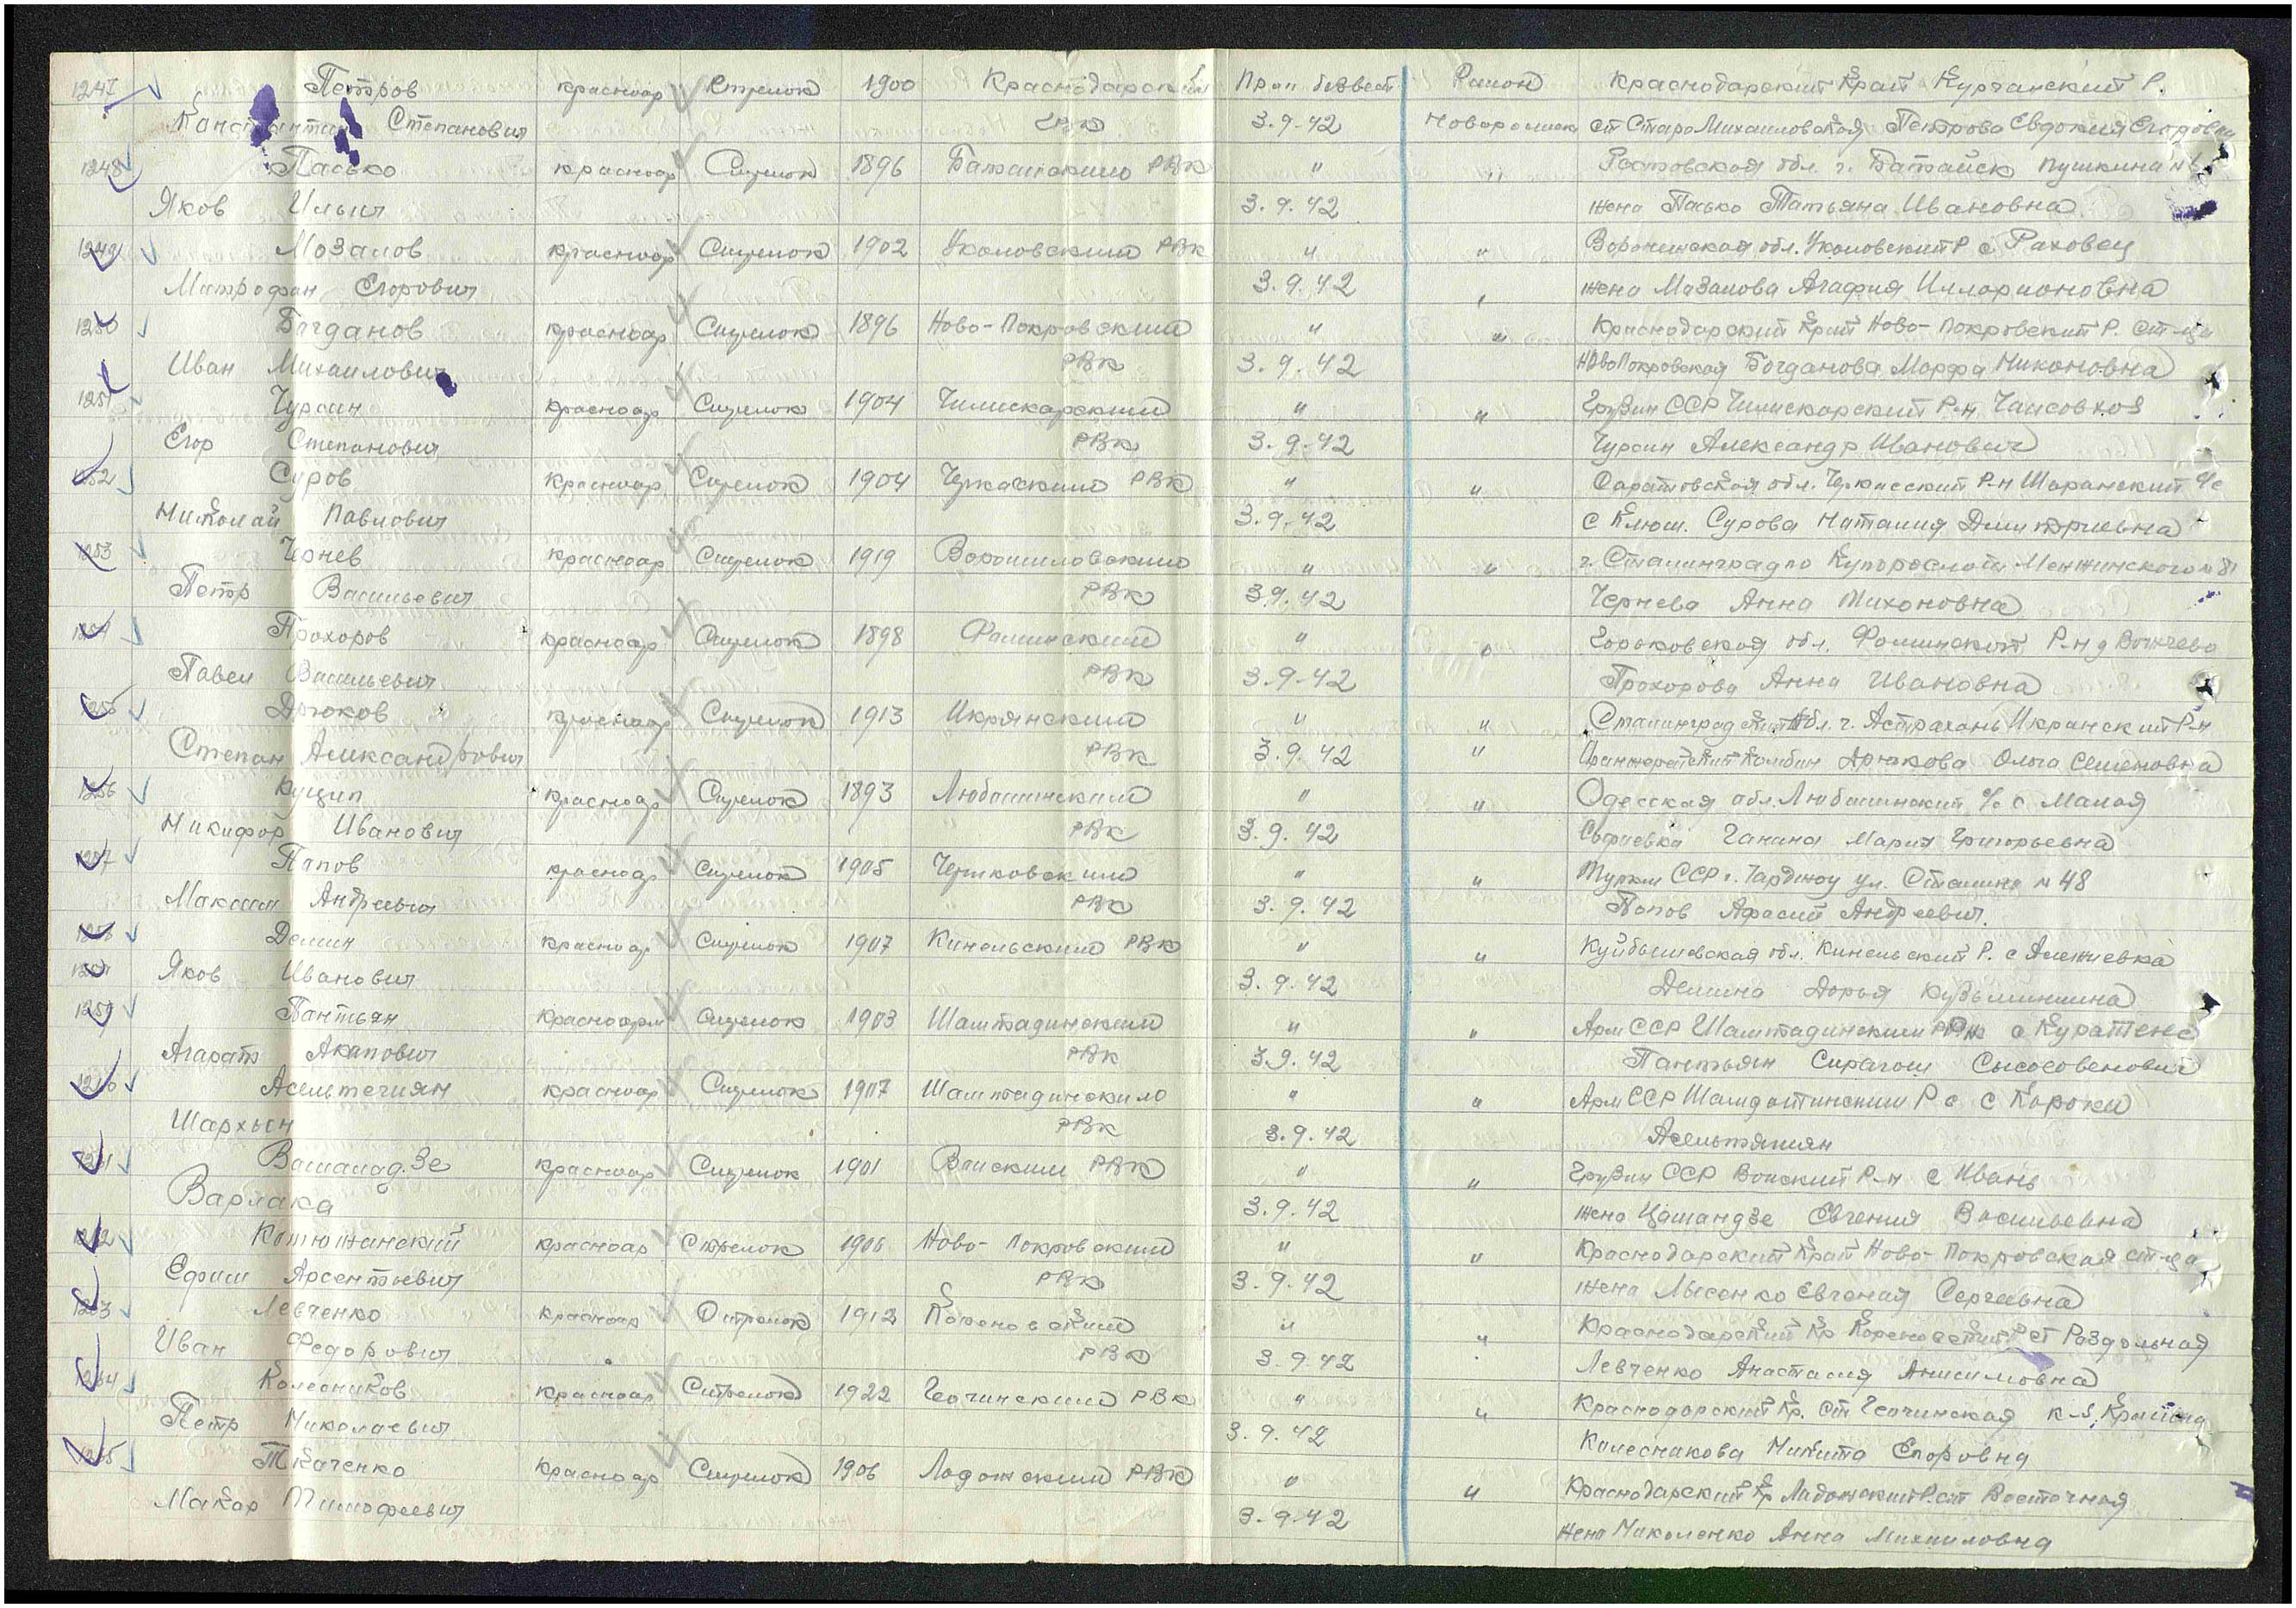 1247 Петров красноар Стрелок 1900 Краснодарский Проп безвест Район Краснодарский Край Курганский Р.
Константин Степанович ГВК 3.9-42 Новоросийск ст Старо Михаиловская Петрова Евдокия Егоровна
1248 Пасько красноар Стрелок 1896 Батайскиио РВК " " Ростовская обл. г. Батайск Пушкина №
Яков Ильич 3.9.42 жена Пасько Татьяна Ивановна
1249 Мозалов красноар Стрелок 1902 Уколовский РВК " " Воронежская обл. Уколовский Р с Раховец
Митрофан Егорович 3.9.42 жена Мазалова Агафия Илларионовна
1250 Богданов красноар Стрелок 1896 Ново-Покровский " " Краснодарский Край Ново-Покровский Р. ст-ца
Иван Михаилович РВК 3.9.42 НовоПокровская Богданова Марфа Никоновна
1251 Чурсин красноар Стрелок 1904 Чилискарский " " Грузин ССР Чилискарский Р-н Чаисовхоз
Егор Степанович РВК 3.9-42 Чурсин Александр Иванович
1252 Суров красноар Стрелок 1904 Черкаский РВК " " Саратовская обл. Черкасский Р-н Шаранский Ч/с
Николай Павлович 3.9.42 с Ключ. Сурова Наталия Дмитриевна
1253 Чернев красноар Стрелок 1919 Ворошиловский " " г. Сталинград по Купоросной Менжинского № 81
Петр Васильевич РВК 39.42 Чернева Анна Тихоновна
1254 Прохоров красноар Стрелок 1898 Фоминский " " Горьковская обл. Фоминский Р-н д
Павел Васильевич РВК 3.9-42 Прохорова Анна Ивановна
1255 Дрюков красноар Стрелок 1913 Икрянский " " Сталинградский обл. г. Астрахань Икранский Р-н
Степан Александрович РВК 3.9.42 " Оранжерейский Комбин Арюкова Ольга Семеновна
1256 Куцин красноар Стрелок 1893 Любашинский " " Одесская обл. Любашинский с Малая
Никифор Иванович РВК 3.9.42 Софиевка Ганина Мария Григорьевна
1257 Папов красноар Стрелок 1905 Черниковский " " Туркм ССР г. Чарджоу ул. Сталина № 48
Максим Андреевич РВК 3.9.42 Попов Афасий Андреевич
1258 Демин красноар Стрелок 1907 Кинельский РВК " " Куйбышевская обл. Кинельский Р. с Алексиевка
Яков Иванович 3.9.42 Демина Дарья Кузьминшина
1259 Пантьян Красноарм Стрелок 1903 Шамшадинский " " Арм ССР Шамшадинский с
Агарат Акапович РВК 3.9.42 Пантьян Сирагош
1260 Асельтегиян красноар Стрелок 1907 Шамшадинскило " " Арм ССР с
Шархын РВК 3.9.42 Асельтягиян
1261 Вашалад.Зе красноар Стрелок 1901 Ванский РВК " " Грузин ССР Ванский Р-н с Ивань
Варлака 3.9.42 жена Цашандзе Евгения Васильевна
1262 Котюжанский красноар Стрелок 1906 Ново-Покровский " " Краснодарский Край Ново-Покровская ст-ца
Ефим Арсентьевич РВК 3.9.42 жена Лысенко Евгения Сергеевна
1263 Левченко красноар Стрелок 1912 Кореновский " " Краснодарский Кр Кореновский Р ст Раздольная
Иван Федорович РВК 3.9.42 Левченко Анастасия Анисимовна
1264 Колесников красноар Стрелок 1922 РВК " " Краснодарский Кр. Ст к-з
Петр Николаевич 3.9.42 Колесникова Никита Егоровна
1265 Ткаченко Красноар Стрелок 1906 Ладожский РВК " " Краснодарский Кр Ладожский Р. ст Восточная
Макар Тимофеевич 3.9.42 жена Маколенко Анна Михаиловна